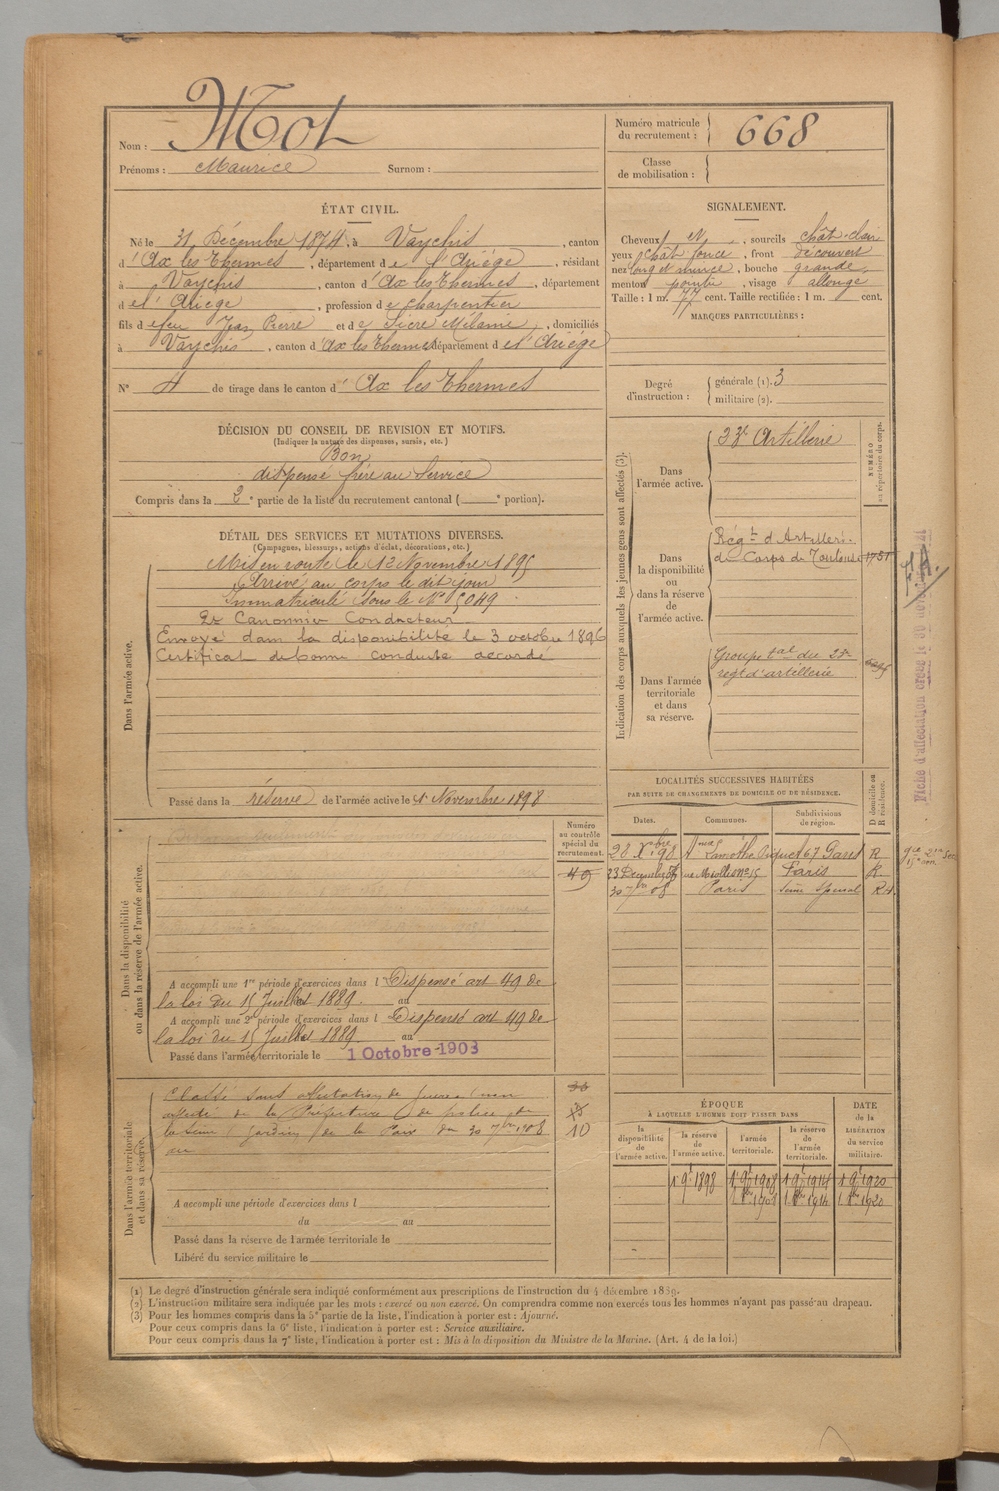 Nom : Mot
Prénoms : Maurice Surnom :
Numéro matricule du recrutement : 668
Classe de mobilisation :
ÉTAT CIVIL.
Né le 31 Décembre 1874, à Vaychis, canton
d'Ax les Thermes, département de l'Ariège, résidant
à Vaychis, canton d'Ax les Thermes, département
de l'Ariège, profession de charpentier
fils de feu Jean Pierre et de Sicre Mélanie, domiciliés
à Vaychis, canton d'Ax les Thermes département de l'Ariège
N° 4 de tirage dans le canton d'Ax les Thermes
SIGNALEMENT.
Cheveux et, sourcils chât-clair
yeux chât foncé, front découvert
nez long et mince, bouche grande,
menton pointu, visage allongé
Taille : 1 m. 77 cent. Taille rectifiée : 1 m. cent.
MARQUES PARTICULIÈRES :
Degré d'instruction : générale (1). 3
militaire (2).
DÉCISION DU CONSEIL DE REVISION ET MOTIFS.
(Indiquer la nature des dispenses, sursis, etc.)
Bon
dispensé frère au Service
Compris dans la 2e partie de la liste du recrutement cantonal ( e portion).
DÉTAIL DES SERVICES ET MUTATIONS DIVERSES.
(Campagnes, blessures, actions d'éclat, décorations, etc.)
Dans l'armée active.
Mis en route le 12 Novembre 1895
Arrivé au corps le dit jour
Immatriculé sous le N° 5049
2e Canonnier Conducteur
Envoyé dans la disponibilité le 3 octobre 1896
Certificat de bonne conduite accordé
Passé dans la réserve de l'armée active le 1er Novembre 1898
Indication des corps auxquels les jeunes gens sont affectés (3).
NUMÉRO au répertoire du corps.
Dans l'armée active.
23e Artillerie
Dans la disponibilité ou dans la réserve de l'armée active.
Régt d'Artillerie
de Corps de Toulouse 1751
Dans l'armée territoriale et dans sa réserve.
Groupe tal du 23e
regt d'artillerie
LOCALITÉS SUCCESSIVES HABITÉES
PAR SUITE DE CHANGEMENTS DE DOMICILE OU DE RÉSIDENCE.
Dates. Communes. Subdivisions de région. D domicile ou R résidence.
28 Xbre 98 Paris R
23 Décembre Paris R.
30 7bre 08 Paris R
Dans la disponibilité ou dans la réserve de l'armée active.
Numéro au contrôle spécial du recrutement.
49
A accompli une 1re période d'exercices dans l Dispensé art 49 de
la loi du 15 Juillet 1889. au
A accompli une 2e période d'exercices dans l Dispensé art 49 de
la loi du 15 Juillet 1889 au
Passé dans l'armée territoriale le 1 Octobre 1908
Dans l'armée territoriale et dans sa réserve.
Classé sans affectation de guerre (non
affecté de la Préfecture de police de
la Seine (gardien de la Paix du 30 7bre 1908
au
10
A accompli une période d'exercices dans l
du au
Passé dans la réserve de l'armée territoriale le
Libéré du service militaire le
ÉPOQUE
À LAQUELLE L'HOMME DOIT PASSER DANS
la disponibilité de l'armée active. la réserve de l'armée active. l'armée territoriale. la réserve de l'armée territoriale. DATE de la LIBÉRATION du service militaire.
1 9bre 1898 1 9bre 1908 1 9bre 1914 1 9bre 1920
1 8bre 1908 1 8bre 1914 1 8bre 1920
Fiche d'affectation créée le
(1) Le degré d'instruction générale sera indiqué conformément aux prescriptions de l'instruction du 4 décembre 1889.
(2) L'instruction militaire sera indiquée par les mots : exercé ou non exercé. On comprendra comme non exercés tous les hommes n'ayant pas passé au drapeau.
(3) Pour les hommes compris dans la 5e partie de la liste, l'indication à porter est : Ajourné.
Pour ceux compris dans la 6e liste, l'indication à porter est : Service auxiliaire.
Pour ceux compris dans la 7e liste, l'indication à porter est : Mis à la disposition du Ministre de la Marine. (Art. 4 de la loi.)